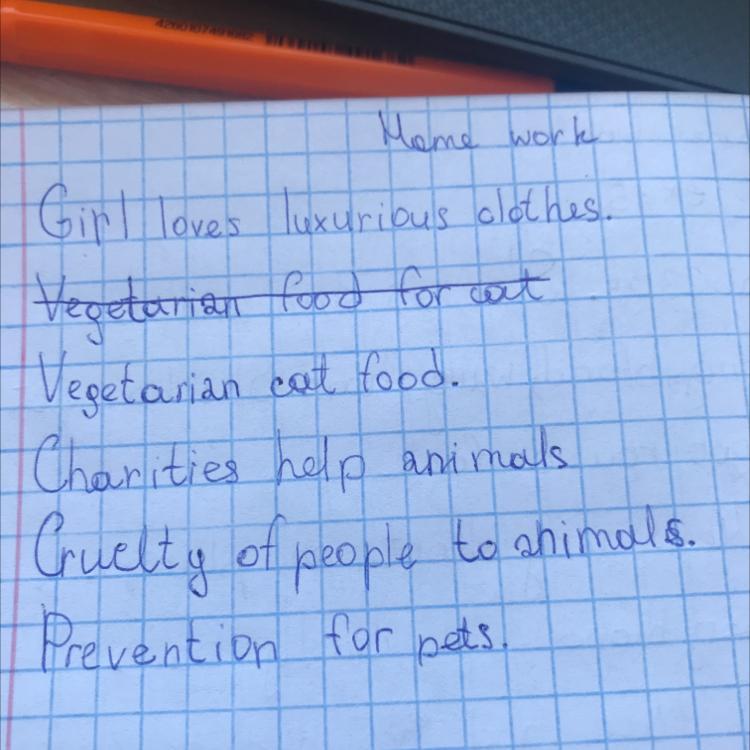 Home work
Girl loves luxurious clothes.
Vegetarian food for cat
Vegetarian cat food.
Charities help animals
Cruelty of people to animals.
Prevention for pets.